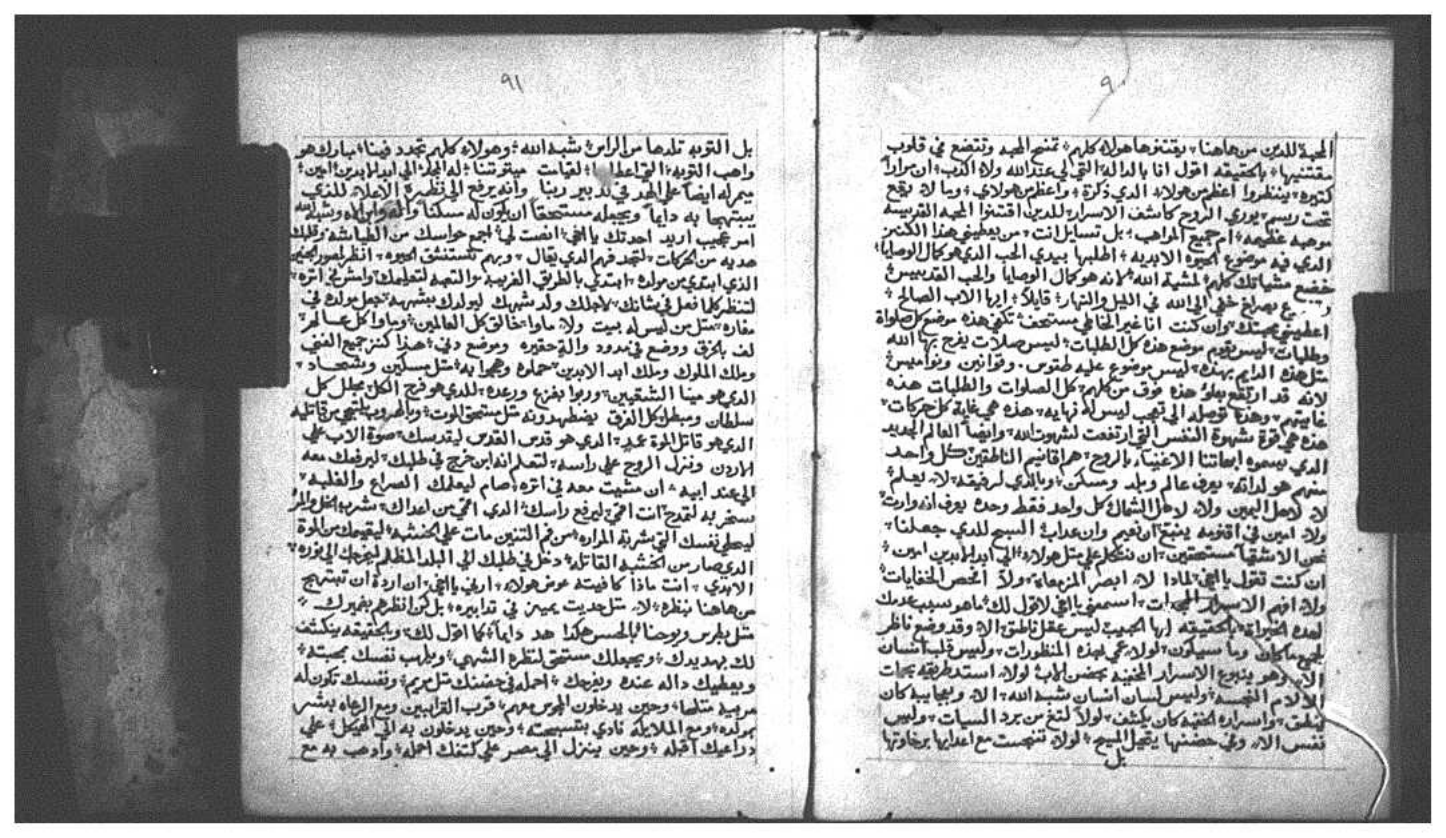 ٩٠
المحبة للدين من هاهنا يقتنوها هولاه كلهم تمنح المحبه وتتضع في قلوب
مقتنيها بالحقيقه اقول انا بالداله التي لي عند الله ولا اكدب ان مرارا
كتيره ينظروا اعظم من هولاه الدي ذكرة واعظم من هولاي وما لا يقع
تحت ريسم يوري الروح كاشف الاسرار للدين اقتنوا المحبه القديسه
موهبه عضيمه ام جميع المواهب بل تسايل انت من يعطيني هذا الكنز
الدي فيه موضوع الحيوه الابديه اطلبها بيدي الحب الدي هو كمال الوصايا
خضع مشياتك كلهم لمشية الله لانه هو كمال الوصايا والحب القديسين
بصراخ خفي الى الله في الليل والنهار قايلا ايها الاب الصالح
اعطيني محبتك وان كنت انا غير الخاطي مستحف تكفي هذه موضع كل صلواة
وطلبات ليس يقوم موضع هذه كل الطلبات ليس صلات يفرح بها الله
مثل هذه الدايم بهده ليس موضوع عليه طقوس وقوانين ونواميس
لانه قد ارتفع بعلو هذه فوق من كلهم كل الصلوات والطلبات هذه
غايتهم وهذا توصله الى تهب ليس له نهايه هذه هي غاية كل حركات
هذه هي قوة شهوة النفس التي ارتفعت لشهوت الله وايضا العالم الجديد
الدي يسموه ابهاتنا الاغنياء بالروح هم اقانيم الناطقين كل واحد
منهم هو لداته يعرف عالم وبلد ومسكن وبالدي لرفيقه لا يعلم
لا لاهل اليمين ولا لاهل الشمال كل واحد فقط وحده يعرف انه وارت
ولا امين في اقنومه ينبع ان نعيم وان عداب السبح للدي جعلنا
نحن الاشقيا مستحقين ان نتكلم على متل هولاه الى ابد الابدين امين
ان كنت تقول يا اخي لمادا لا ابصر المزمعاة ولا افحص الخفايات
ولا افهم الاسرار اسمعني يا اخي لاقول لك ما هو سبب عدمك
لهده الخيراة بالحقيقه ايها الحبيب ليس عقل ناطق الا وقد وضع ناظر
لجميع ما كان وما سيكون لولا عمي لهده المنظورات وليس قلب انسان
الا وهو ينبوع الاسرار المخفيه بحضن الاب لولا استد طريقه بحات
الالام النجسه وليس لسان انسان شبه الله الا وبعجايبه كان
ينطق واسراره الخفيه كان يكشف لولا لتغ من برد السيات وليس
نفس الا وفي حضنها يتجلى المسيح لولا تنجست مع اعدايها برخاوتها
بل
٩١
بل التوبه تلدها من الراس بشبه الله وهولاه كلهم تجدد فينا مبارك هو
واهب التوبه التي اعطا لقيامت ميتوتتنا له المجد الى ابد الابدين امين
ميمر له ايضا على الهد في تدبير ربنا وانه يرفع الى نظرة الاعلا للذي
يبتهج به دايما ويجعله مستحقا ان يكون له مسكنا
امر عجيب اريد احدتك يا اخي انصت لي اجمع حواسك من الطياشه وقلبك
هديه من الحركات لتجد فهم الدي يقال وبهم تستنشق الحيوه انظر لمصور الجنين
الذي ابتدي من مولده ابتدي بالطريق الغريبه والتعبه لتعليمك وامش في اتره
لتنظر كلما فعل في شانك لاجلك ولد شبهك ليولدك بشبهه جعل مولده في
مغاره متل من ليس له بيت ولا ماوا خالق كل العالمين وماوا كل عالم
لف بالخرق ووضع في مدود والة حقيره وموضع دني هذا كنز جميع الغني
وملك الملوك وملك ابد الابدين حملوه وهجوا به متل مسكين وشحاد
الدي هو مينا الشقيين وربوا بفزع ورعده للدي هو فرج الكل مجلل كل
سلطان ومبطل كل الفرق يضطهدونه متل مستحق الموت وبالهروب ينجي من قاتليه
الدي هو قاتل الموة عمد الدي هو قدس القدس ليقدسك صوة الاب على
الاردن ونزل الروح على راسه لتعلم انه ابن خرج في طلبك ليرفعك معه
الى عند ابيه ان مشيت معه في اتره صام ليعلمك الصراع والغلبه
سخر به لتمدح انت اخي ليرفع راسك الدي اخي من اعداك شرب الخل والمر
ليحلي نفسك التي شربة المراره من فم التنين مات على الخشبه ليقيمك من الموة
الدي صار من الخشبه القاتله دخل في طلبك الى البلد المظلم ليخرجك الى نوره
الابدي انت ماذا كافيته عوض هولاه ارني يا اخي ان اردة ان تبتهج
من هاهنا بنظره لا متل حديت يميز في تدابيره بل كن انظرهم بضميرك
متل بطرس ويوحنا بالحس هكذا هد دايما كما اقول لك وبالحقيقه ينكشف
لك بهديدك ويجعلك مستحق لنظره الشهي ويلهب نفسك بمحبته
ويعطيك داله عنده ويفرحك احمله في حضنك متل مريم ونفسك تكون له
مربية متلها وحين يدخلون المجوس معهم قرب القرابين ومع الرعاه بشر
بمولده ومع الملايكه نادي بتسبحته وحين يدخلون به الى الهيكل على
دراعيك اقبله وحين ينزل الى مصر على كتفك احمله وادهب به مع